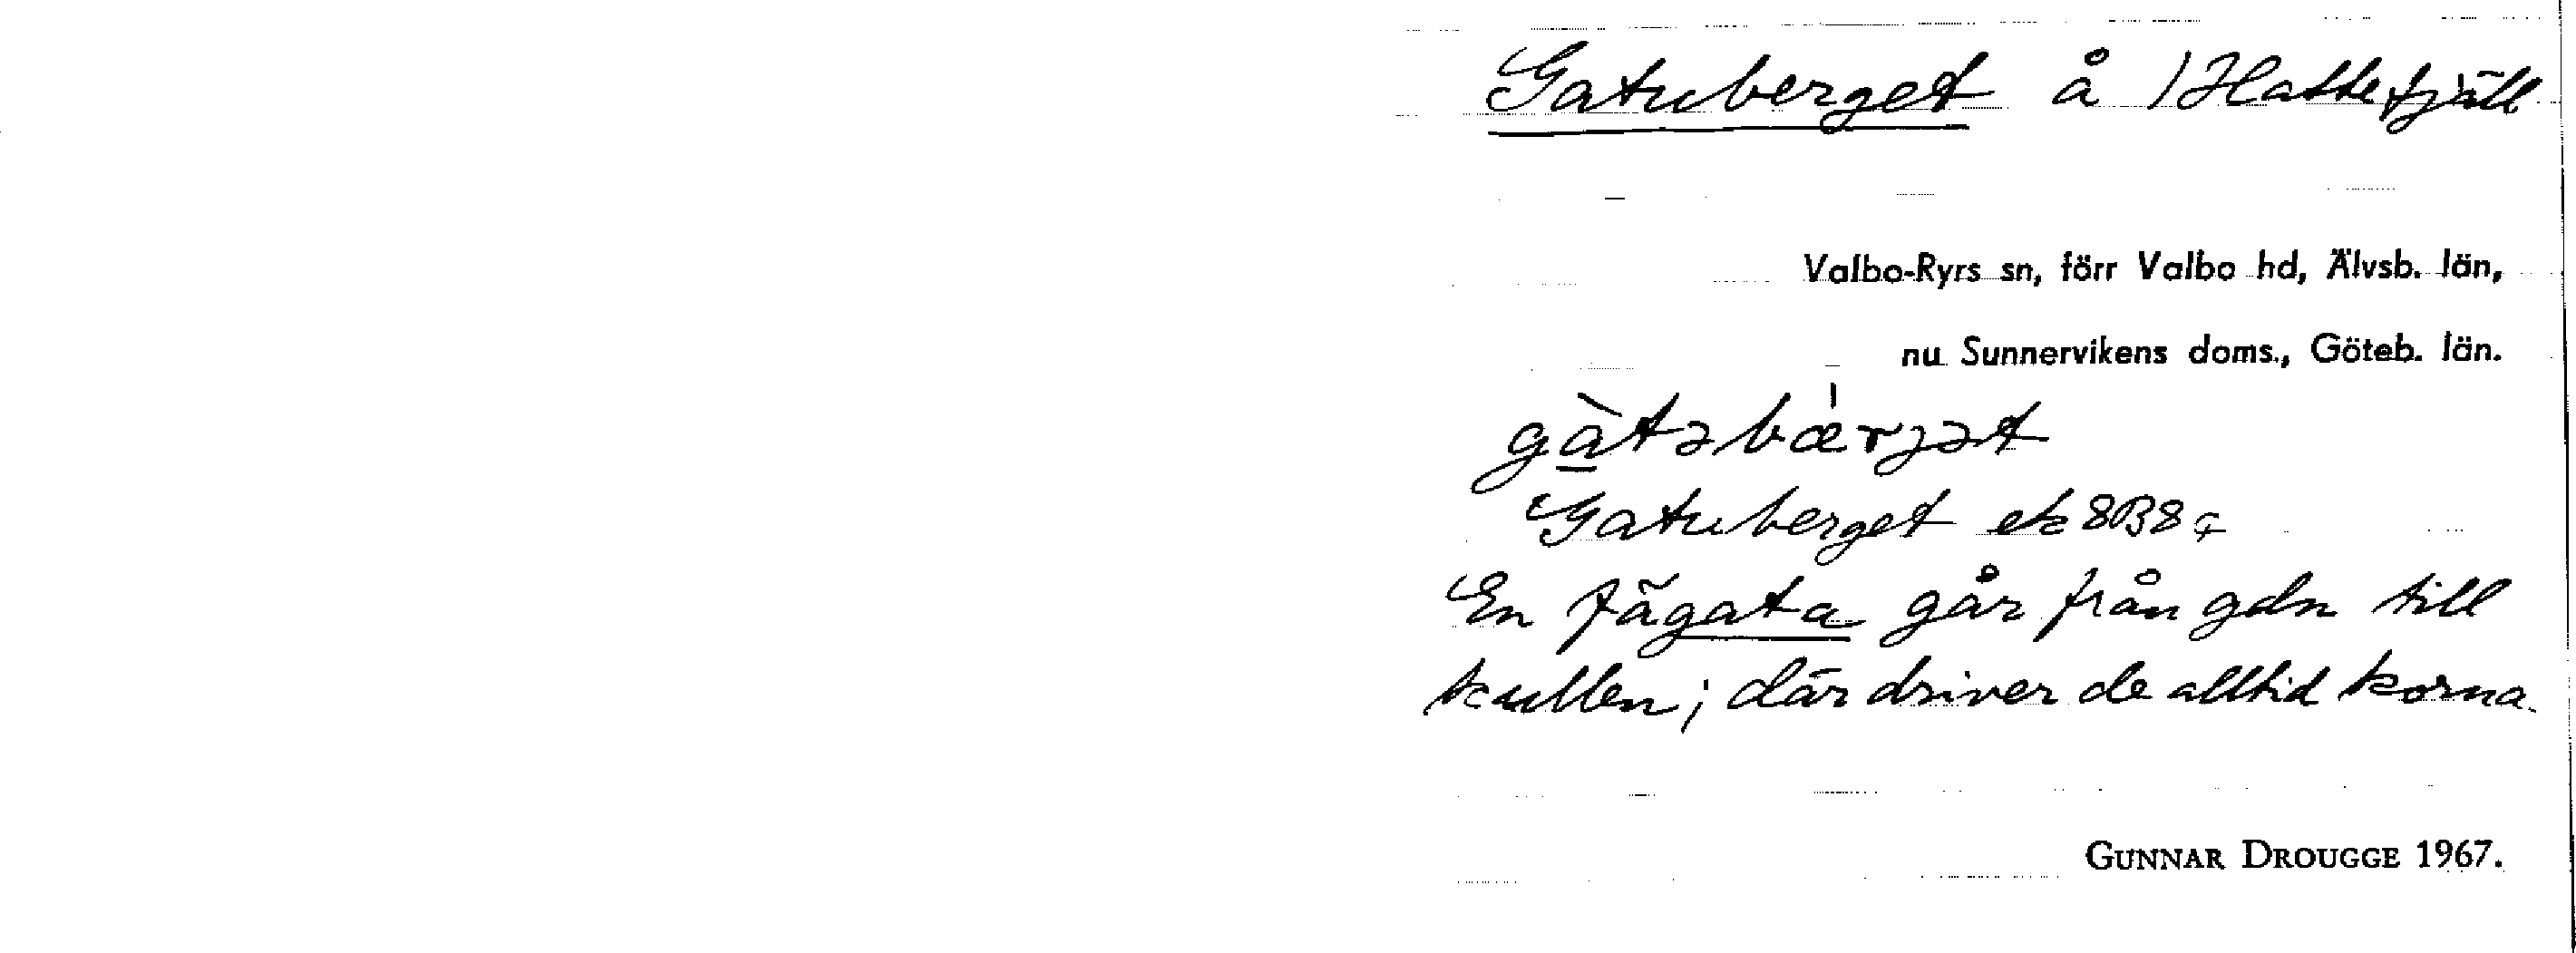 Gatuberget å 1 Hattefjäll
Valbo-Ryrs sn, förr Valbo hd, Älvsb. län,
nu Sunnervikens doms., Göteb. län.
gàtəbæ̀rjət
Gatuberget ek 8B8
En fägata går från gdn till
kullen; där driver de alltid korna.
GUNNAR DROUGGE 1967.